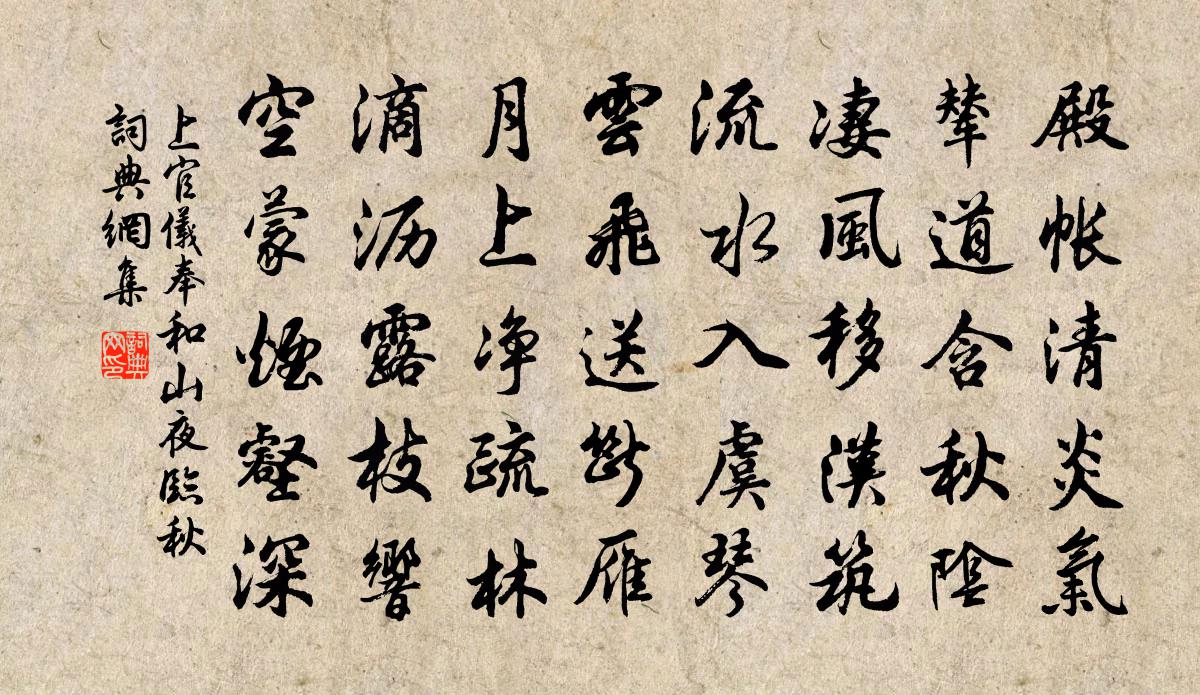 殿帐清炎氣
輦道含秋陰
凄風移漢筑
流水入虞琴
雲飛送斷雁
月上净疏林
滴沥露枝響
空蒙煙壑深
上官儀奉和山夜臨秋
詞典網集
詞典
网印